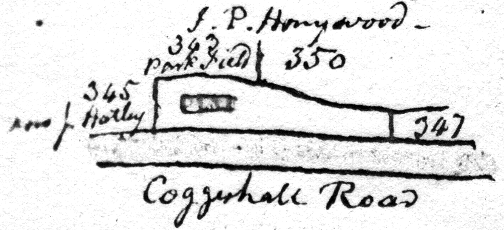 J. P. Honywood
343
Park Field
350
345
Hatley
347
Coggeshall Road